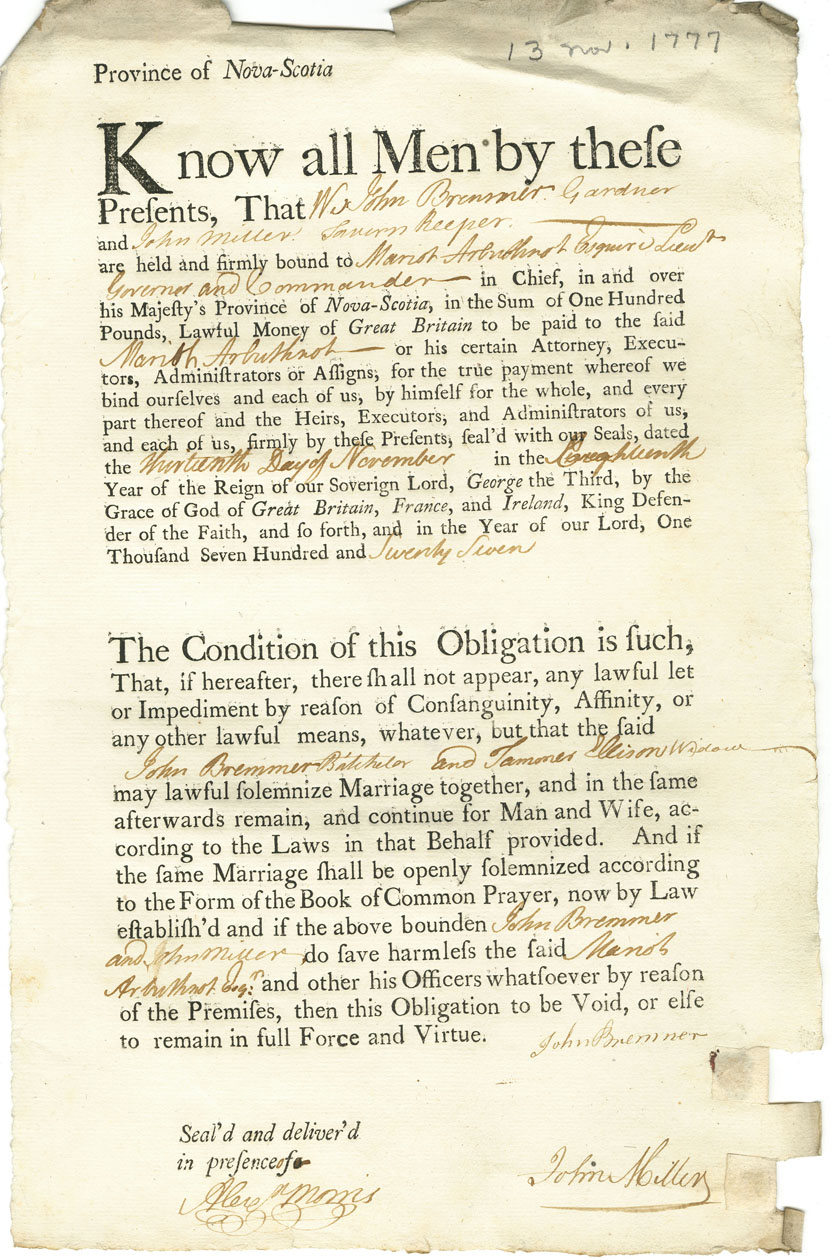 13 Nov. 1777
Province of Nova-Scotia
Know all Men by theſe
Preſents, That We John Bremner Gardner
and John Miller Tavern Keeper.
are held and firmly bound to Mariot Arbuthnot Esquire Lieut
Governor and Commander in Chief, in and over
his Majeſty's Province of Nova-Scotia, in the Sum of One Hundred
Pounds, Lawful Money of Great Britain to be paid to the ſaid
Mariot Arbuthnot or his certain Attorney, Execu-
tors, Adminiſtrators or Aſſigns, for the true payment whereof we
bind ourſelves and each of us, by himſelf for the whole, and every
part thereof and the Heirs, Executors, and Adminiſtrators of us,
and each of us, firmly by theſe Preſents, ſeal'd with our Seals, dated
the thirtienth Day of November in the Eighteenth
Year of the Reign of our Soverign Lord, George the Third, by the
Grace of God of Great Britain, France, and Ireland, King Defen-
der of the Faith, and ſo forth, and in the Year of our Lord, One
Thouſand Seven Hundred and Seventy Seven
The Condition of this Obligation is ſuch,
That, if hereafter, there ſhall not appear, any lawful let
or Impediment by reaſon of Conſanguinity, Affinity, or
any other lawful means, whatever, but that the ſaid
John Bremner Batchelor and Tamoner Ellison Widow
may lawful ſolemnize Marriage together, and in the ſame
afterwards remain, and continue for Man and Wife, ac-
cording to the Laws in that Behalf provided. And if
the ſame Marriage ſhall be openly ſolemnized according
to the Form of the Book of Common Prayer, now by Law
eſtabliſh'd and if the above bounden John Bremner
and John Miller do ſave harmleſs the ſaid Mariot
Arbuthnot Esqr. and other his Officers whatſoever by reaſon
of the Premiſes, then this Obligation to be Void, or elſe
to remain in full Force and Virtue.
John Bremner
Seal'd and deliver'd
in preſence of
Alexr Morris
John Miller